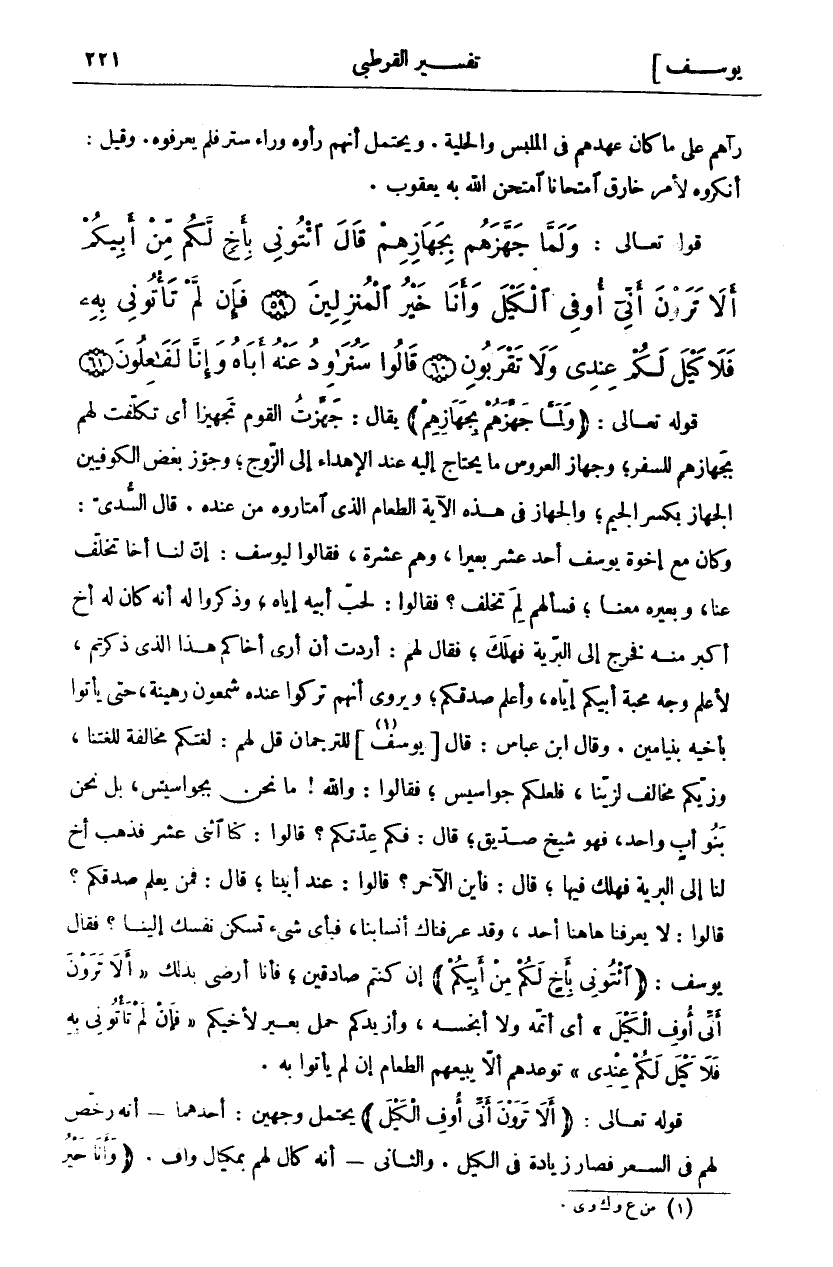 يوسف] تفسير القرطبى ٢٢١
رآهم على ما كان عهدهم فى الملبس والحلية . ويحتمل أنهم رأوه وراء ستر فلم يعرفوه. وقيل :
أنكروه لأمر خارق آمتحانا آمتحن الله به يعقوب .
قوا تعالى : وَلَمَّا جَهَّزَهُم بِجَهَازِهِمْ قَالَ ٱئْتُونِى بِأَخٍ لَّكُم مِّنْ أَبِيكُمْ
أَلَا تَرَوْنَ أَنِّىٓ أُوفِى ٱلْكَيْلَ وَأَنَا خَيْرُ ٱلْمُنزِلِينَ ﴿٥٩﴾ فَإِن لَّمْ تَأْتُونِى بِهِۦ
فَلَا كَيْلَ لَكُمْ عِندِى وَلَا تَقْرَبُونِ ﴿٦٠﴾ قَالُوا سَنُرَٰوِدُ عَنْهُ أَبَاهُ وَإِنَّا لَفَٰعِلُونَ ﴿٦١﴾
قوله تعالى : ﴿وَلَمَّا جَهَّزَهُمْ بِجَهَازِهِمْ﴾ يقال : جَهَّزتُ القوم تجهيزا أى تكلّفت لهم
بجَهازهم للسفر؛ وجهاز العروس ما يحتاج إليه عند الإهداء إلى الزّوج؛ وجوّز بعض الكوفيين
الجهاز بكسر الجيم؛ والجهاز فى هذه الآية الطعام الذى آمتاروه من عنده . قال السُّدىّ :
وكان مع إخوة يوسف أحد عشر بعيرا، وهم عشرة، فقالوا ليوسف : إنّ لنا أخا تخلّف
عنا، وبعيره معنا؛ فسألهم لِمَ تخلف؟ فقالوا : لحبّ أبيه إياه، وذكروا له أنه كان له أخ
أكبر منه فخرج إلى البرّية فهلك؛ فقال لهم : أردت أن أرى أخاكم هذا الذى ذكرتم،
لأعلم وجه محبة أبيكم إيّاه، وأعلم صدقكم؛ ويروى أنهم تركوا عنده شمعون رهينة، حتى يأتوا
بأخيه بنيامين . وقال ابن عباس : قال [يوسف](١) للترجمان قل لهم : لغتكم مخالفة للغتنا،
وزيّكم مخالف لزيّنا، فلعلكم جواسيس؛ فقالوا : والله! ما نحن بجواسيس، بل نحن
بَنُو أبٍ واحد، فهو شيخ صدّيق؛ قال : فكم عِدّتكم؟ قالوا : كنا آثنى عشر فذهب أخ
لنا إلى البرية فهلك فيها؛ قال : فأين الآخر؟ قالوا : عند أبينا؛ قال : فمن يعلم صدقكم؟
قالوا : لا يعرفنا هاهنا أحد، وقد عرفناك أنسابنا، فبأى شىء تسكن نفسك إلينا؟ فقال
يوسف : ﴿ٱئْتُونِى بِأَخٍ لَكُمْ مِنْ أَبِيكُمْ﴾ إن كنتم صادقين؛ فأنا أرضى بذلك «أَلَا تَرَوْنَ
أَنِّى أُوفِ الْكَيْلَ» أى أتمّه ولا أبخسه، وأزيدكم حمل بعير لأخيكم «فَإِنْ لَمْ تَأْتُونِى بِهِ
فَلَا كَيْلَ لَكُمْ عِنْدِى» توعدهم ألّا يبيعهم الطعام إن لم يأتوا به .
قوله تعالى : ﴿أَلَا تَرَوْنَ أَنِّى أُوفِ الْكَيْلَ﴾ يحتمل وجهين : أحدهما — أنه رخّص
لهم فى السعر فصار زيادة فى الكيل . والثانى — أنه كال لهم بمكيال واف . ﴿وَأَنَا خَيْرُ
(١) من ع و ك و ى .